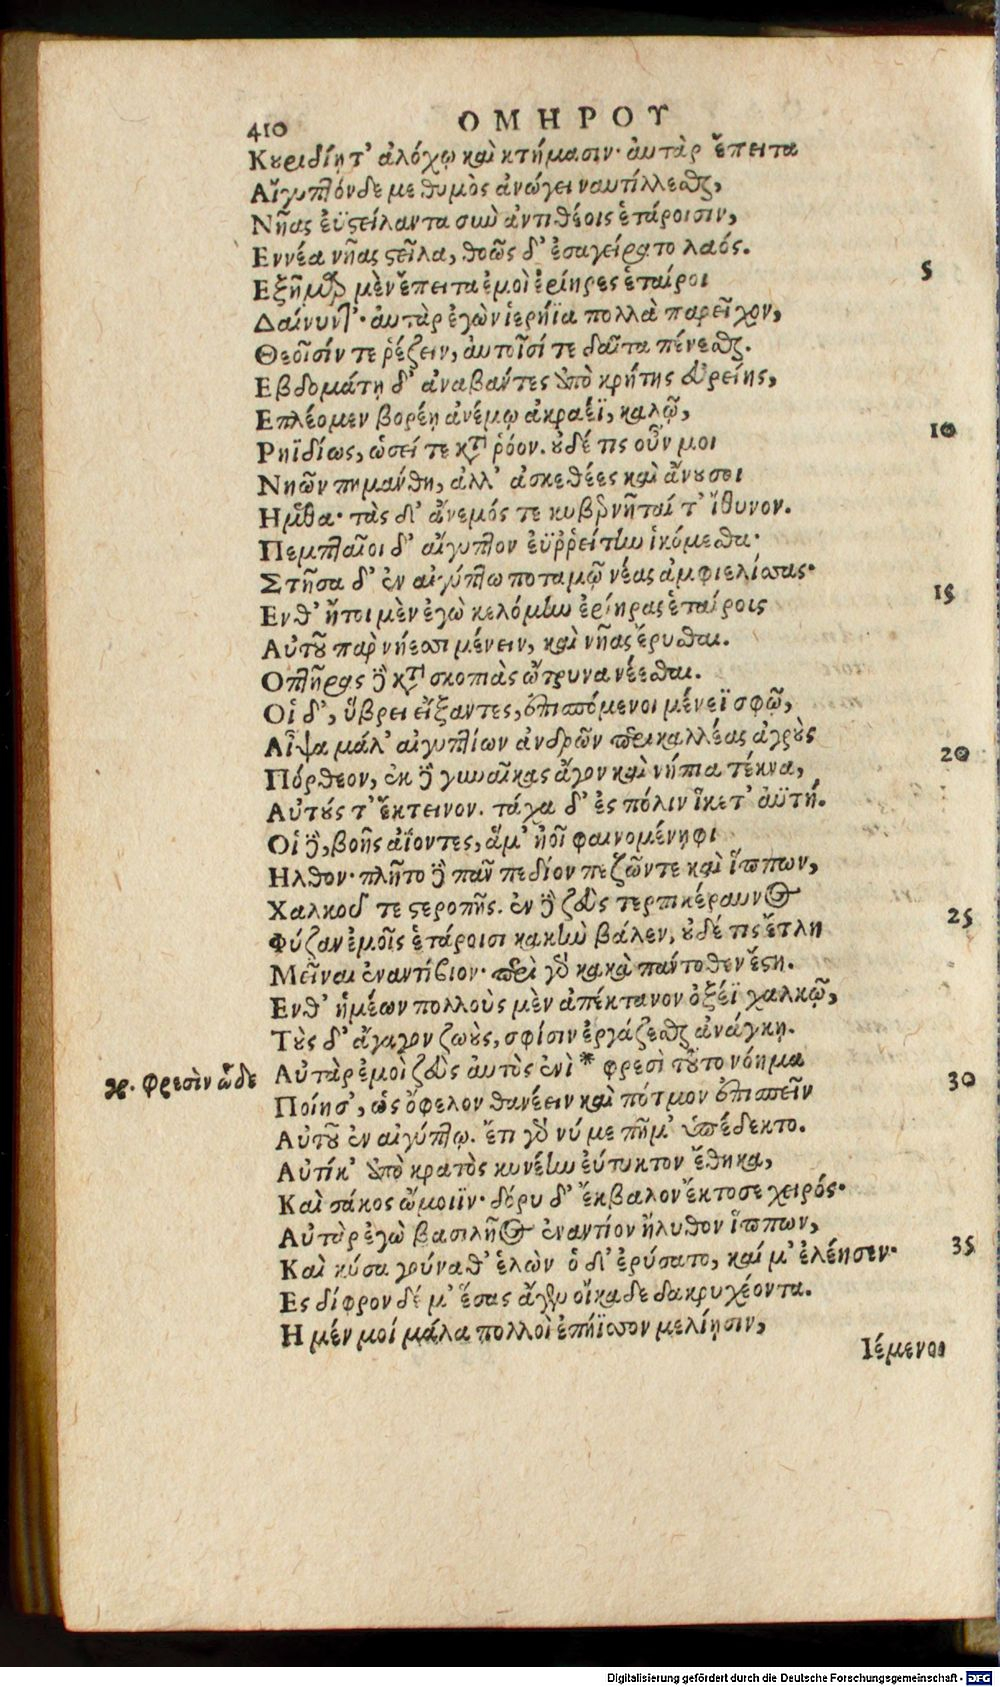 410
ΟΜΗΡΟΥ
Κουριδίῃ τ' ἀλόχῳ καὶ κτήμασιν· αὐτὰρ ἔπειτα
Αἴγυπτόνδε με θυμὸς ἀνώγει ναυτίλλεσθαι,
Νῆας ἐῢ στείλαντα σὺν ἀντιθέοις ἑτάροισιν,
Εννέα νῆας στεῖλα, θοῶς δ' ἐσαγείρατο λαός.
Εξῆμαρ μὲν ἔπειτα ἐμοὶ ἐρίηρες ἑταίροι 5
Δαίνυντ'· αὐτὰρ ἐγὼν ἱερήϊα πολλὰ παρεῖχον,
Θεοῖσίν τε ῥέζειν, αὐτοῖσί τε δαῖτα πένεσθαι.
Εβδομάτῃ δ' ἀναβάντες ἀπὸ κρήτης εὐρείης,
Επλέομεν βορέῃ ἀνέμῳ ἀκραέϊ, καλῷ,
Ρηϊδίως, ὡσεί τε κατὰ ῥόον. οὐδέ τις οὖν μοι 10
Νηῶν πημάνθη, ἀλλ' ἀσκεθέες καὶ ἄνουσοι
Ημεθα· τὰς δ' ἄνεμός τε κυβερνῆταί τ' ἴθυνον.
Πεμπταῖοι δ' αἴγυπτον ἐϋῤῥείτην ἱκόμεσθα·
Στῆσα δ' ἐν αἰγύπτω ποταμῷ νέας ἀμφιελίσσας·
Ενθ' ἤτοι μὲν ἐγὼ κελόμην ἐρίηρας ἑταίροις 15
Αὐτοῦ παρ νήεσσι μένειν, καὶ νῆας ἔρυσθαι.
Οπτῆρας δὲ κατὰ σκοπιὰς ὤτρυνα νέεσθαι.
Οἱ δ', ὕβρει εἴξαντες, ἐπισπόμενοι μένεϊ σφῷ,
Αἶψα μάλ' αἰγυπτίων ἀνδρῶν περικαλλέας ἀγροὺς
Πόρθεον, ἐκ δὲ γυναῖκας ἄγον καὶ νήπια τέκνα, 20
Αὐτούς τ' ἔκτεινον. τάχα δ' ἐς πόλιν ἵκετ' ἀϋτή.
Οἱ δὲ, βοῆς ἀΐοντες, ἅμ' ἠοῖ φαινομένηφι
Ηλθον· πλῆτο δὲ πᾶν πεδίον πεζῶν τε καὶ ἵππων,
Χαλκοῦ τε στεροπῆς. ἐν δὲ ζεὺς τερπικέραυνος
Φύζαν ἐμοῖς ἑτάροισι κακὴν βάλεν, οὐδέ τις ἔτλη 25
Μεῖναι ἐναντίβιον· περὶ γὰρ κακὰ πάντοθεν ἔστη.
Ενθ' ἡμέων πολλοὺς μὲν ἀπέκτανον ὀξέϊ χαλκῷ,
Τοὺς δ' ἄγαγον ζωοὺς, σφίσιν ἐργάζεσθαι ἀνάγκῃ.
γρ. φρεσὶν ὧδε
Αὐτὰρ ἐμοὶ ζεὺς αὐτὸς ἐνὶ * φρεσὶ τοῦτο νόημα
Ποίησ', ὡς ὄφελον θανέειν καὶ πότμον ἐπισπεῖν 30
Αὐτοῦ ἐν αἰγύπτῳ. ἔτι γὰρ νύ με πῆμ' ὑπέδεκτο.
Αὐτίκ' ἀπὸ κρατὸς κυνέην εὔτυκτον ἔθηκα,
Καὶ σάκος ὤμοιϊν· δόρυ δ' ἔκβαλον ἔκτοσε χειρός·
Αὐτὰρ ἐγὼ βασιλῆος ἐναντίον ἤλυθον ἵππων,
Καὶ κύσα γούναθ' ἑλὼν ὁ δ' ἐρύσατο, καί μ' ἐλέησεν· 35
Ες δίφρον δέ μ' ἕσας ἄγεν οἴκαδε δακρυχέοντα.
Η μέν μοί μάλα πολλοὶ ἐπήϊσσον μελίῃσιν,
Ιέμενοι
Digitalisierung gefördert durch die Deutsche Forschungsgemeinschaft - DFG